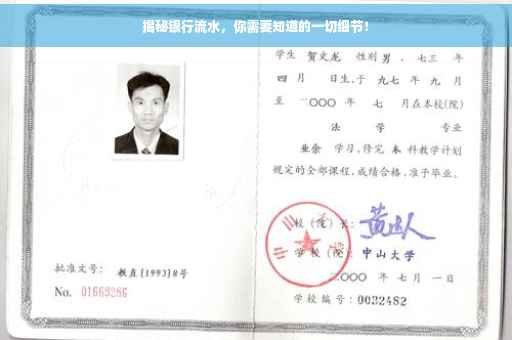 揭秘银行流水，你需要知道的一切细节！
学生 贺文龙 性别 男，七三 年
四 月 日生，于 九七 年 九 月
至 二〇〇〇 年 七 月在本校(院)
法 学 专业
业余 学习，修完 本 科教学计划
规定的全部课程，成绩合格，准予毕业。
校 (院) 长：
学 校 (院)： 中山大学
二〇〇〇 年 七 月 一 日
学校编号：0032482
批准文号： 教直[1993]8号
No. 01669286